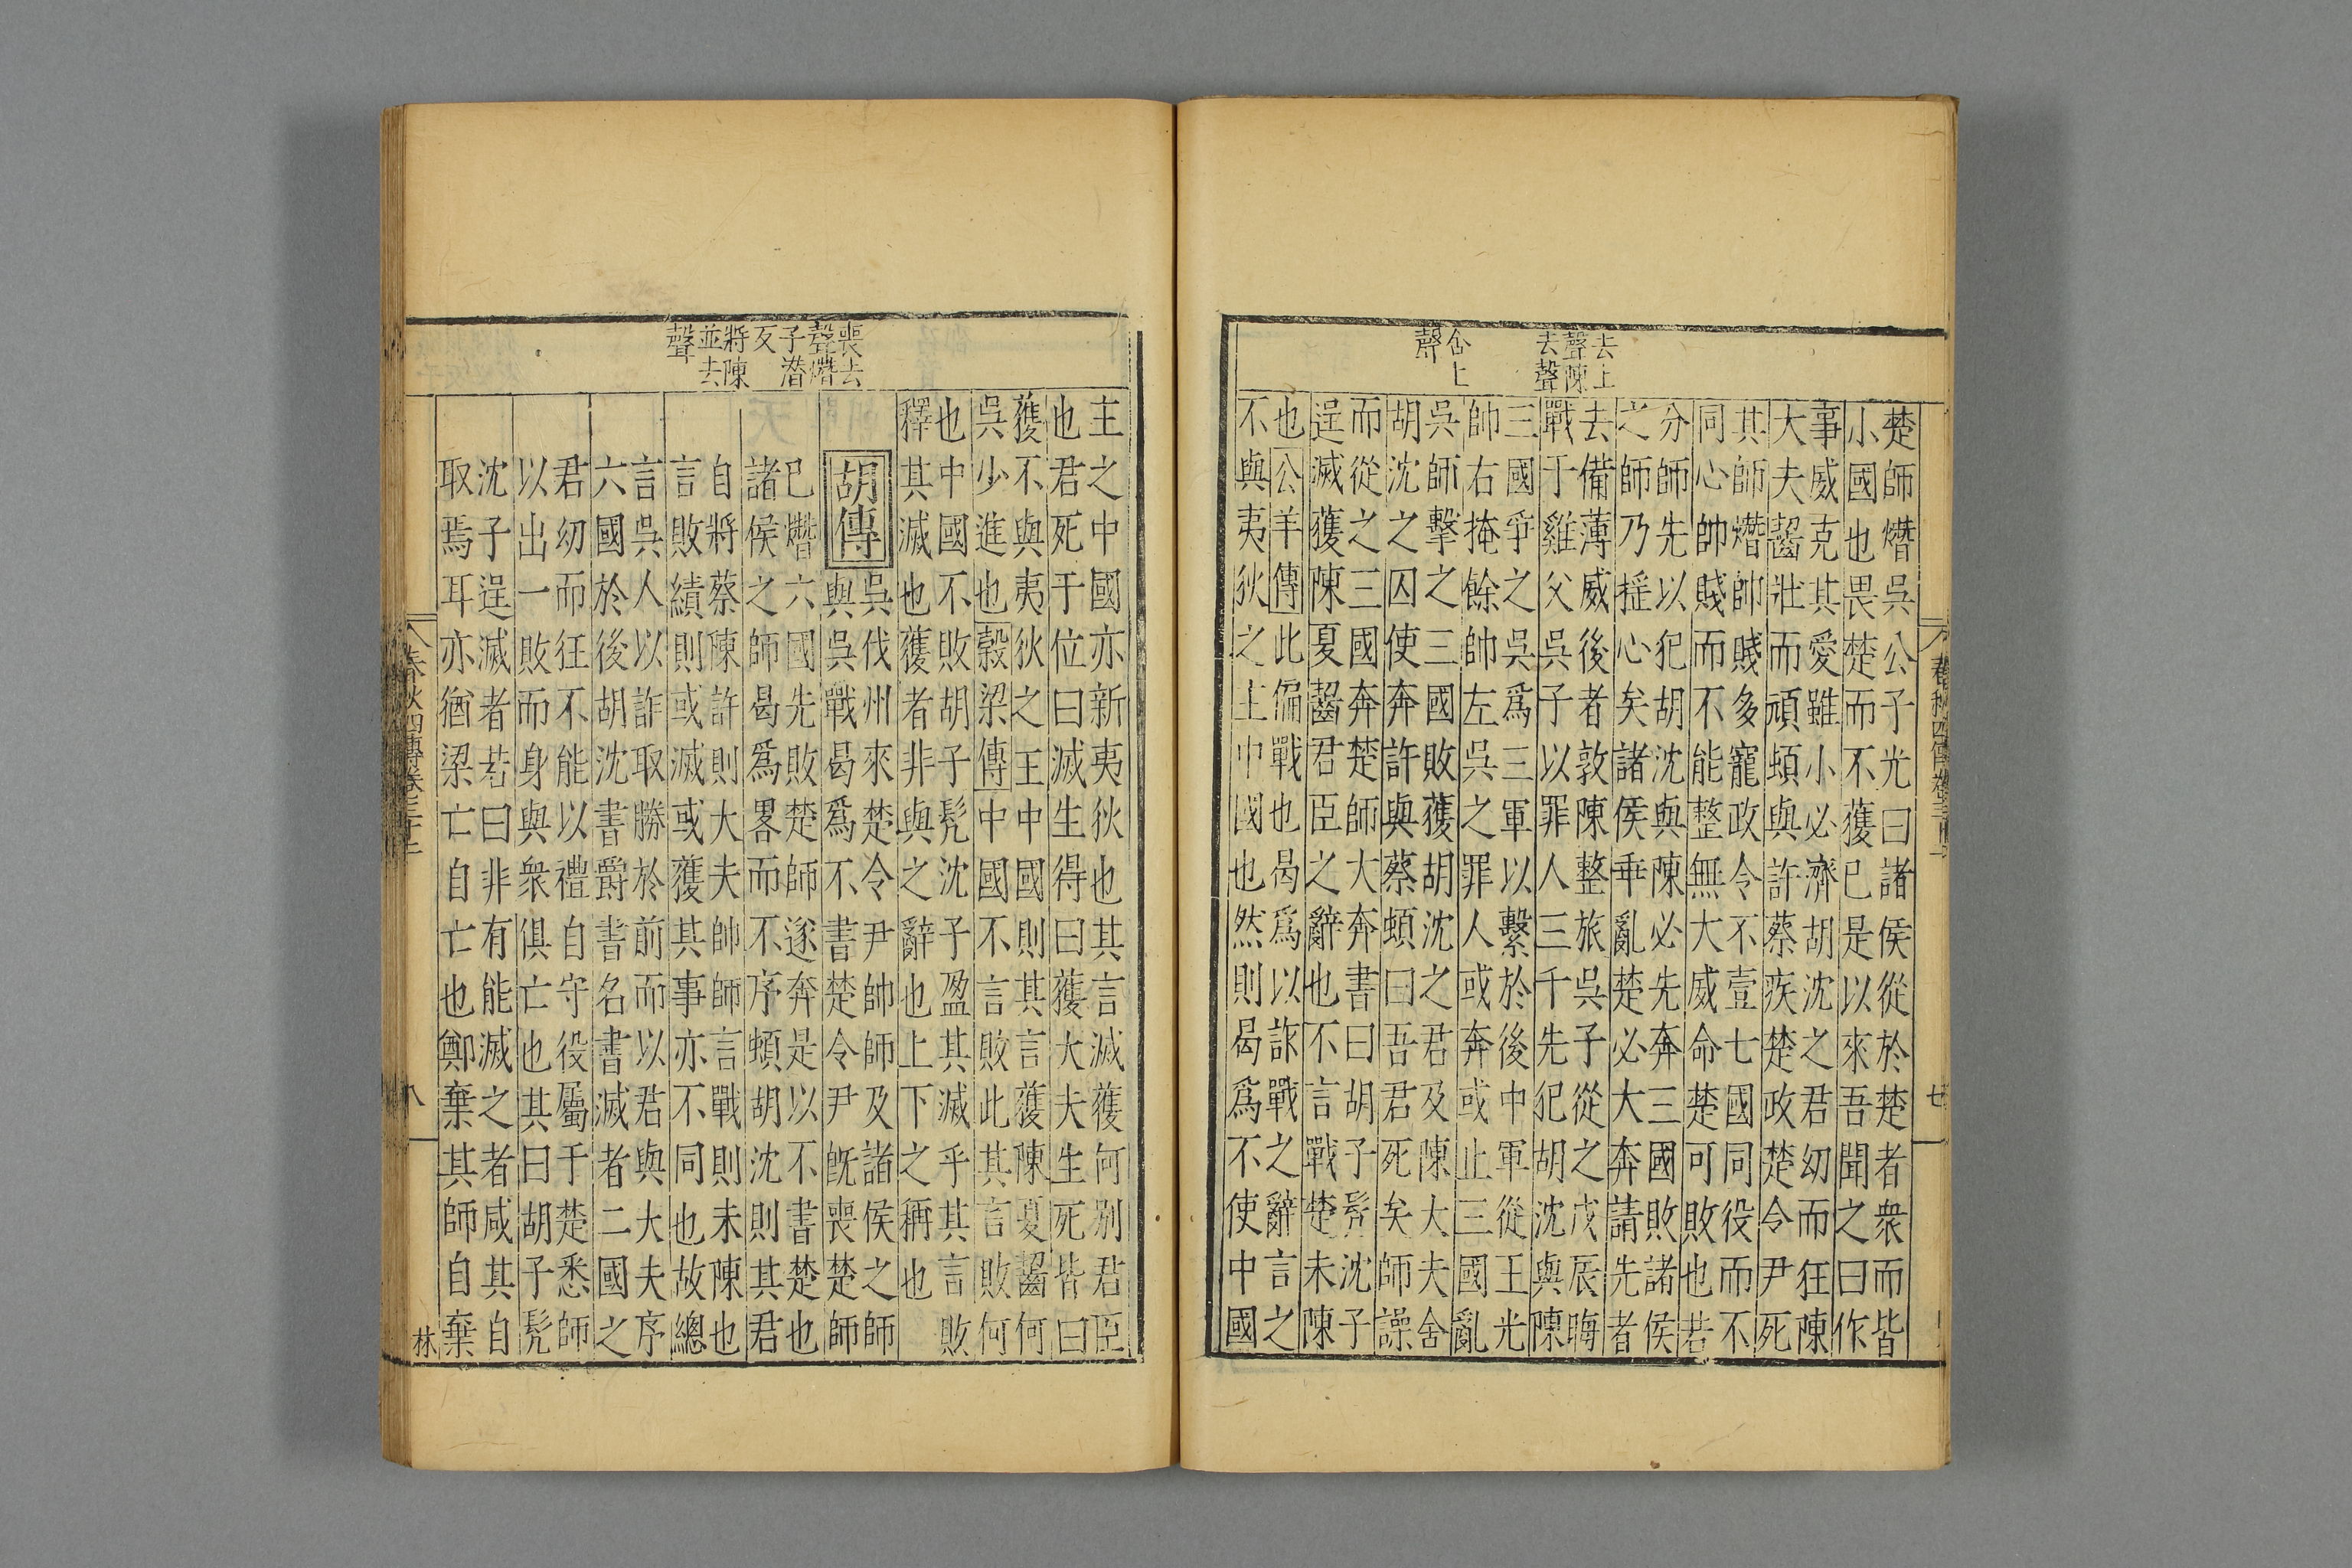 去上
聲陳
去聲
舎上
聲
楚師熸吳公子光曰諸侯從於楚者衆而皆
小國也畏楚而不獲已是以來吾聞之曰作
事威克其愛雖小必濟胡沈之君幼而狂陳
大夫齧壯而頑頓與許蔡疾楚政楚令尹死
其師熸帥賤多寵政令不壹七國同役而不
同心帥賤而不能整無大威命楚可敗也若
分師先以犯胡沈與陳必先奔三國敗諸侯
之師乃揺心矣諸侯乖亂楚必大奔請先者
去備薄威後者敦陳整旅吳子從之戊辰晦
戰于雞父吳子以罪人三千先犯胡沈與陳
三國爭之吳爲三軍以繫於後中軍從王光
帥右掩餘帥左吳之罪人或奔或止三國亂
吳師擊之三國敗獲胡沈之君及陳大夫舍
胡沈之囚使奔許與蔡頓曰吾君死矣師譟
而從之三國奔楚師大奔書曰胡子髠沈子
逞滅獲陳夏齧君臣之辭也不言戰楚未陳
也公羊傳此偏戰也曷爲以詐戰之辭言之
不與夷狄之主中國也然則曷爲不使中國
喪去
聲熸
子潛
反
將陳
並去
聲
主之中國亦新夷狄也其言滅獲何別君臣
也君死于位曰滅生得曰獲大夫生死皆曰
獲不與夷狄之主中國則其言獲陳夏齧何
吳少進也穀梁傳中國不言敗此其言敗何
也中國不敗胡子髠沈子盈其滅乎其言敗
釋其滅也獲者非與之辭也上下之稱也
胡傳吳伐州來楚令尹帥師及諸侯之師
與吳戰曷爲不書楚令尹旣喪楚師
已熸六國先敗楚師遂奔是以不書楚也
諸侯之師曷爲畧而不序頓胡沈則其君
自將蔡陳許則大夫帥師言戰則未陳也
言敗績則或滅或獲其事亦不同也故總
言吳人以詐取勝於前而以君與大夫序
六國於後胡沈書爵書名書滅者二國之
君幼而狂不能以禮自守役屬于楚悉師
以出一敗而身與衆俱亡也其曰胡子髠
沈子逞滅者若曰非有能滅之者咸其自
取焉耳亦猶梁亡自亡也鄭棄其師自棄
春秋四傳卷三十二
八
林